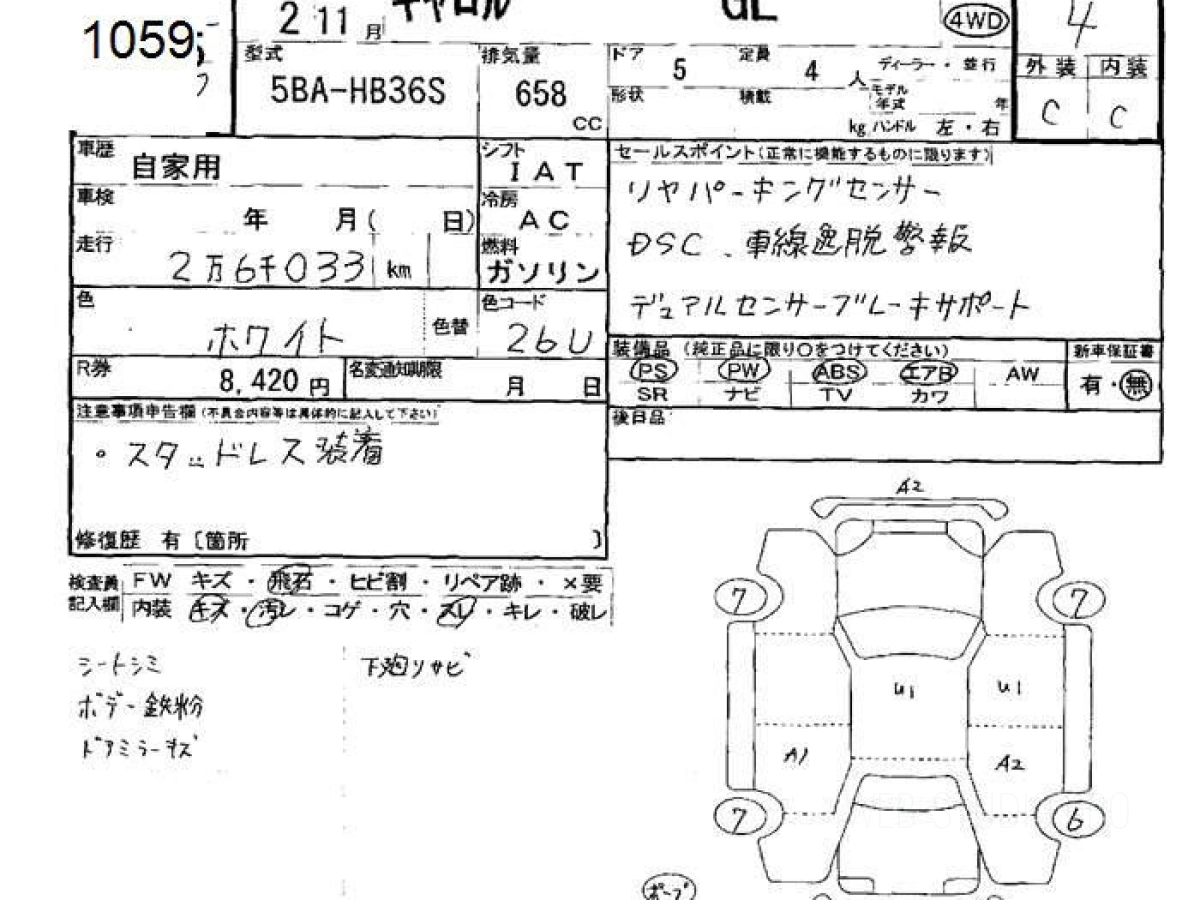 1059
2 11 月 キャロル GL 4WD 4
型式 5BA-HB36S
排気量 658 CC
ドア 5 定員 4 人 ディーラー・並行
形状 積載 kg
モデル年式 年
ハンドル 左・右
外装 内装
C C
車歴 自家用
シフト IAT
車検 年 月( 日)
冷房 AC
走行 2万6千033 km
燃料 ガソリン
色 ホワイト 色替
色コード 26U
R券 8,420円
名変通知期限 月 日
セールスポイント(正常に機能するものに限ります)
リヤパーキングセンサー
DSC、車線逸脱警報
デュアルセンサーブレーキサポート
装備品 (純正品に限り○をつけてください)
PS PW ABS エアB AW
SR ナビ TV カワ
新車保証書
有・無
後日品
注意事項申告欄(不具合内容等は具体的に記入して下さい)
・スタッドレス装着
修復歴 有〔箇所 〕
検査員記入欄
FW キズ・飛石・ヒビ割・リペア跡・×要
内装 キズ・汚レ・コゲ・穴・スレ・キレ・破レ
シートシミ
ボデー鉄粉
ドアミラーキズ
下廻リサビ
A2
7 7
U1 U1
A1 A2
7 6